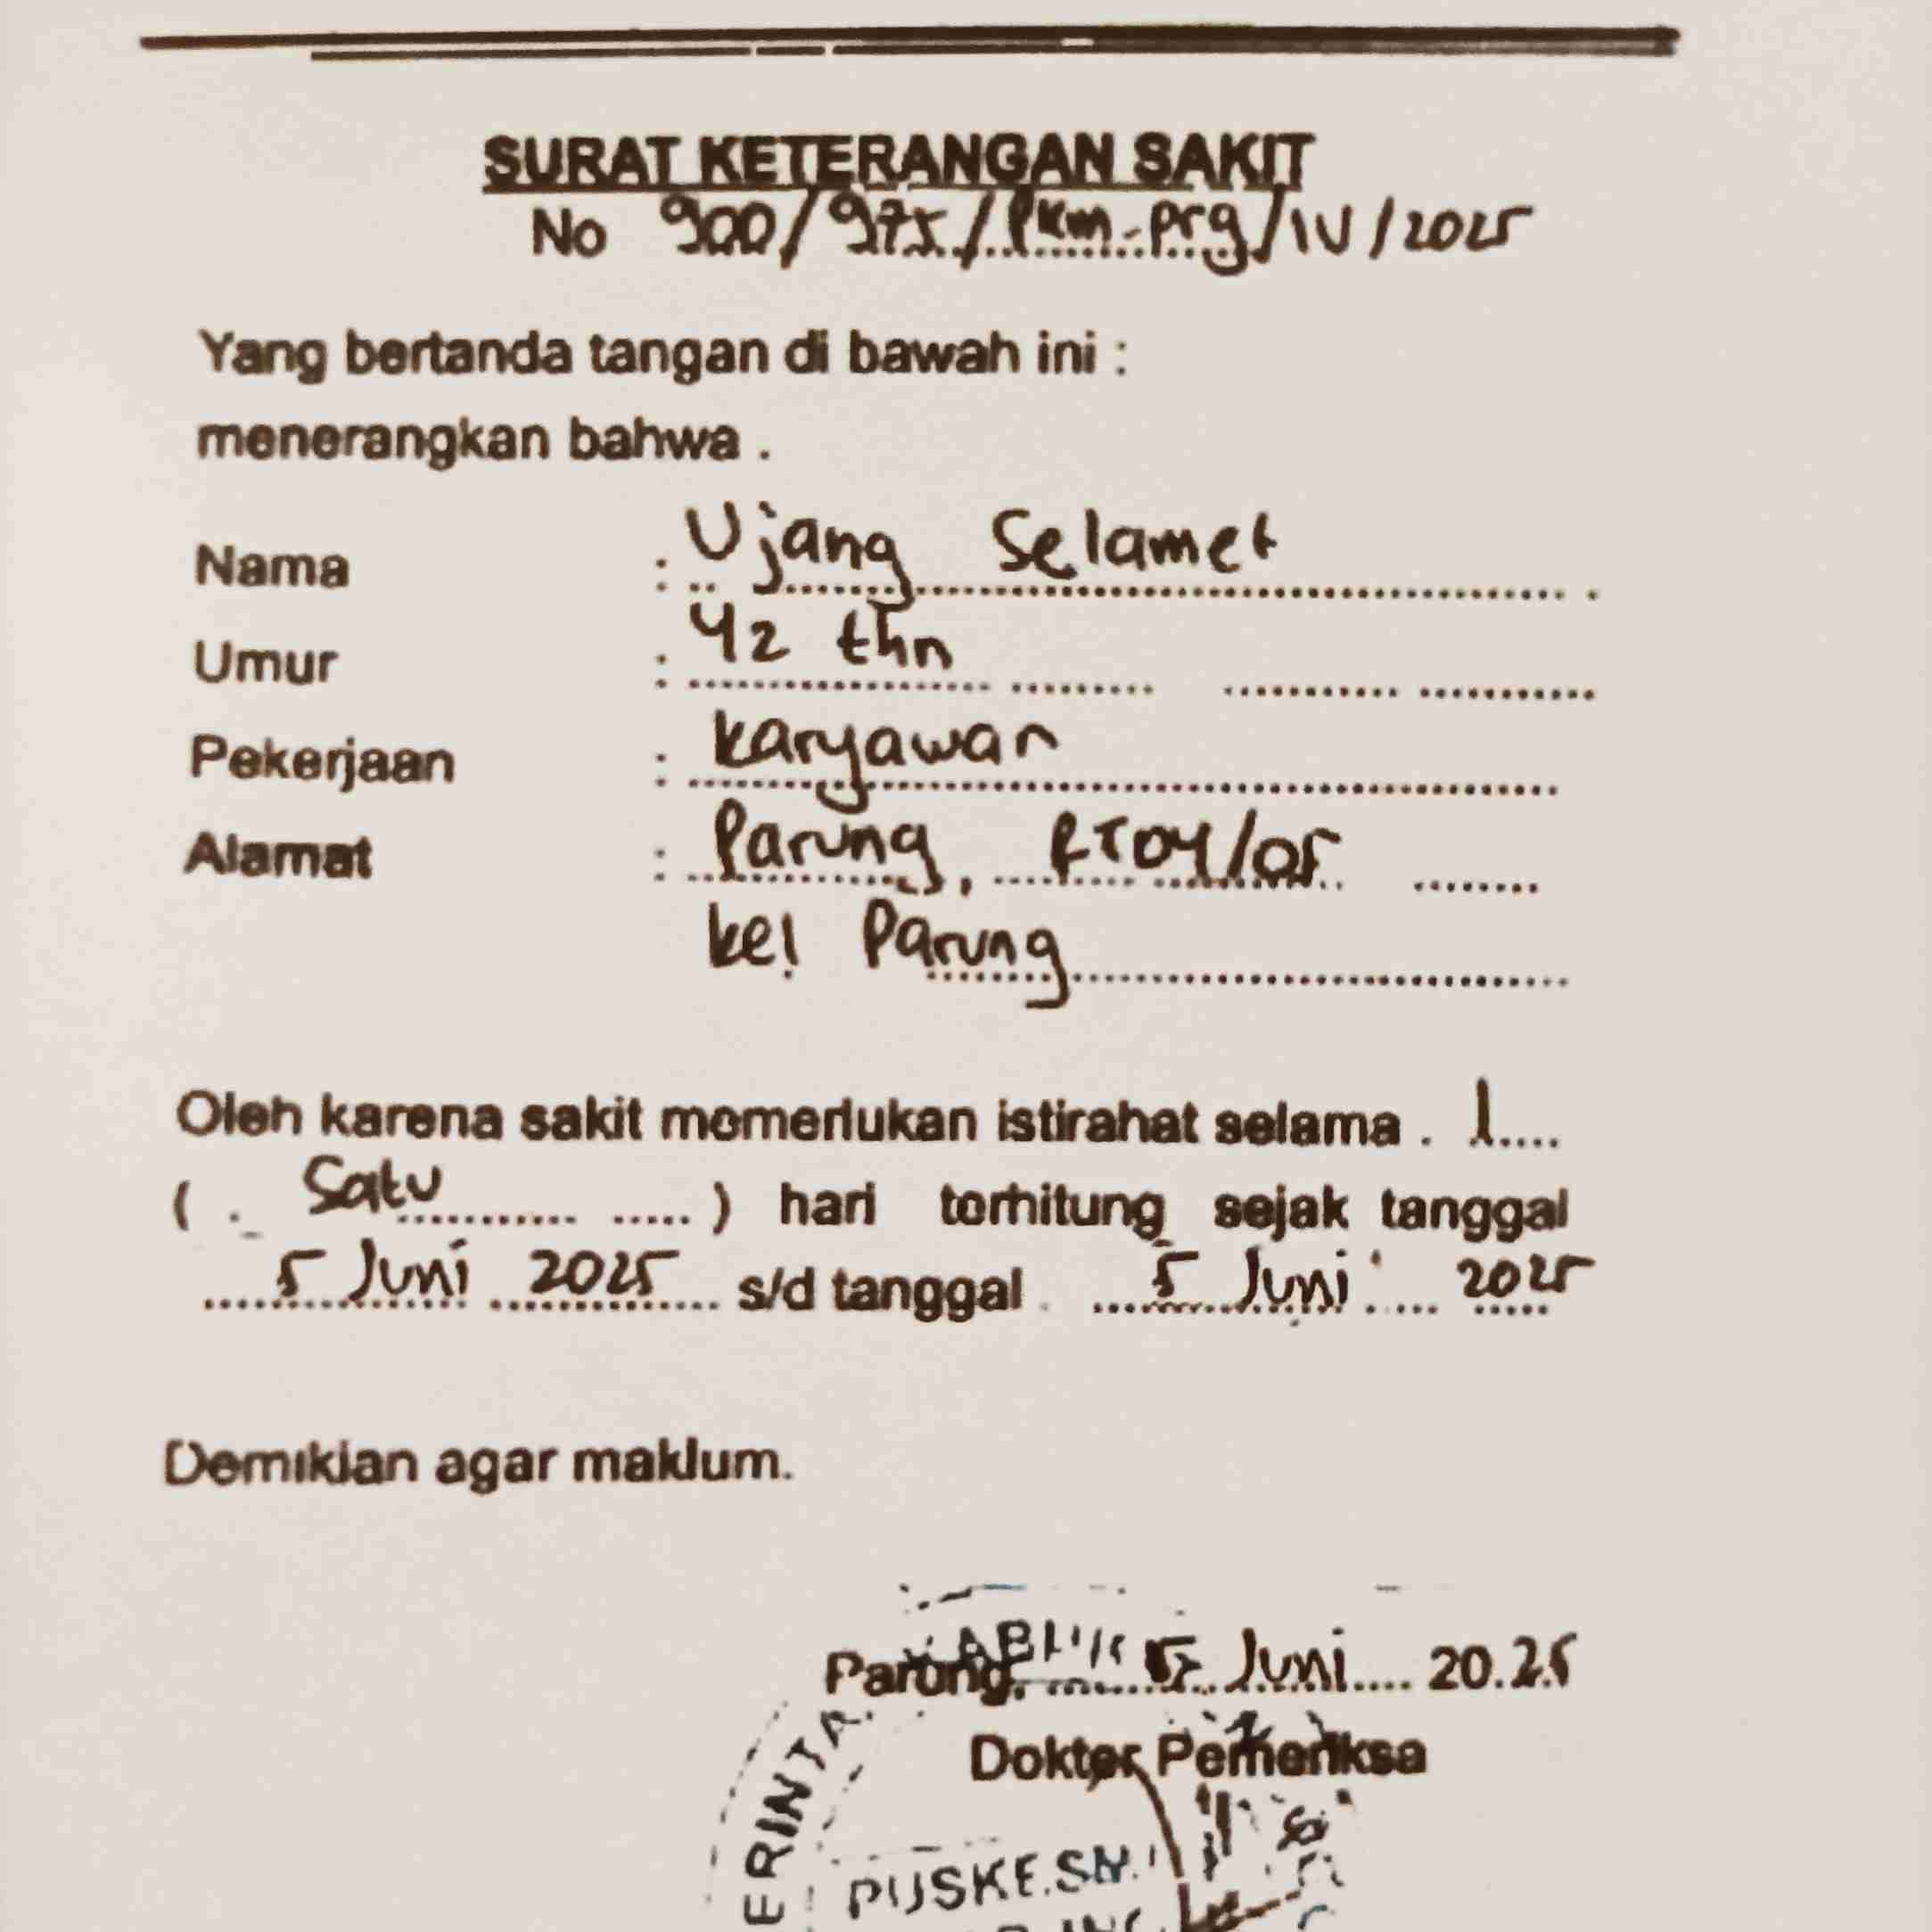 SURAT KETERANGAN SAKIT
No 900/975/Pkm-prg/IV/2025
Yang bertanda tangan di bawah ini :
menerangkan bahwa .
Nama : Ujang Selamet
Umur : 42 thn
Pekerjaan : karyawan
Alamat : Parung, RT04/05
kel Parung
Oleh karena sakit memerlukan istirahat selama . 1
( . Satu ) hari terhitung sejak tanggal
5 Juni 2025 s/d tanggal 5 Juni 2025
Demikian agar maklum.
Parung, 5 Juni 2025
Dokter Pemeriksa